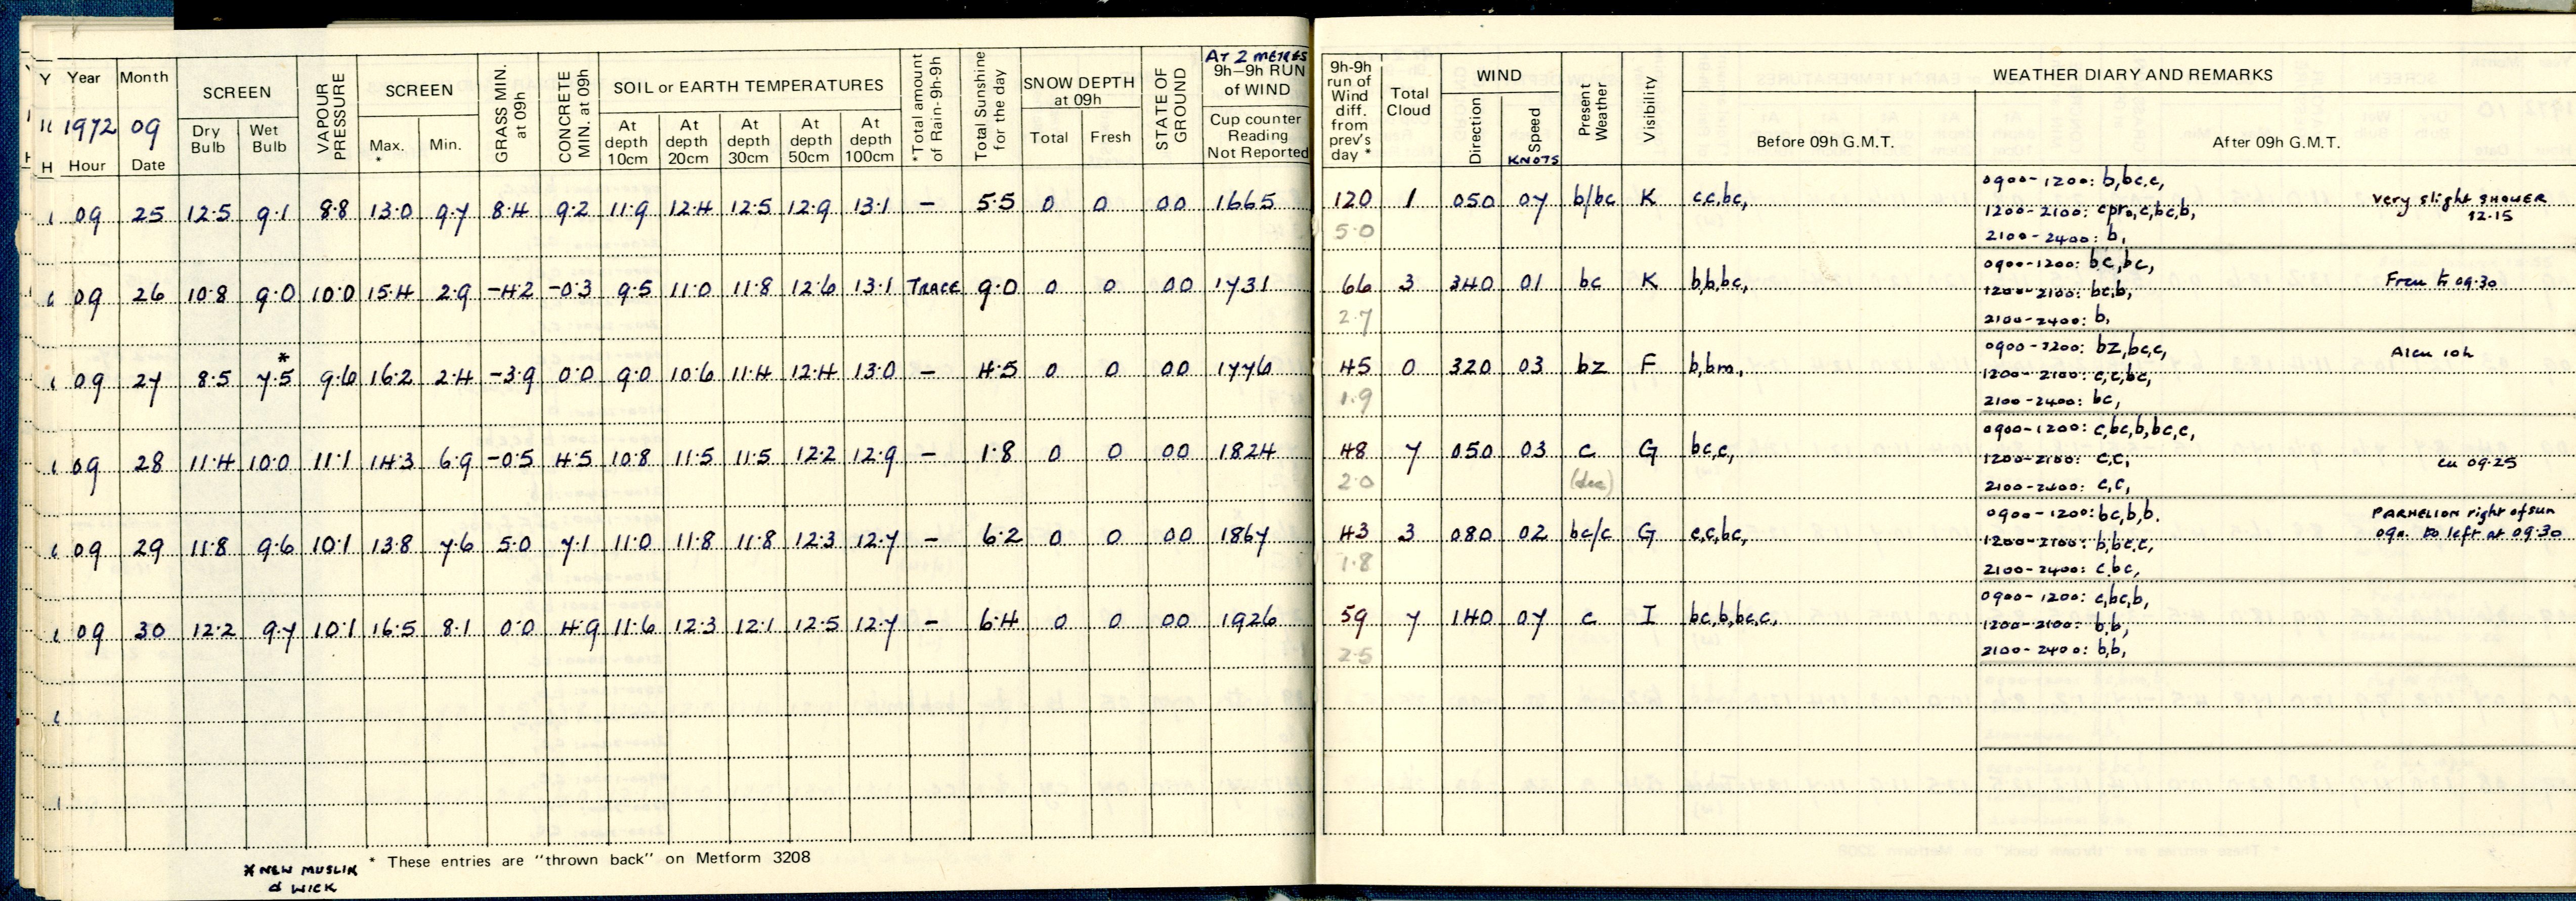 AT 2 METRES
Y Year Month SCREEN VAPOUR PRESSURE SCREEN GRASS MIN. at 09h CONCRETE MIN. at 09h SOIL or EARTH TEMPERATURES *Total amount of Rain-9h-9h Total Sunshine for the day SNOW DEPTH at 09h STATE OF GROUND 9h–9h RUN of WIND 9h-9h run of Wind diff. from prev's day * Total Cloud WIND Present Weather Visibility WEATHER DIARY AND REMARKS
1972 09 Dry Bulb Wet Bulb Max. * Min. At depth 10cm At depth 20cm At depth 30cm At depth 50cm At depth 100cm Total Fresh Cup counter Reading Not Reported Direction Speed KNOTS Before 09h G.M.T. After 09h G.M.T.
H Hour Date
0900-1200: b,bc,c,
09 25 12.5 9.1 8.8 13.0 9.7 8.4 9.2 11.9 12.4 12.5 12.9 13.1 – 5.5 0 0 00 1665 120 1 050 07 b/bc K c,c,bc, 1200-2100: cpro,c,bc,b, very slight SHOWER 12.15
5.0 2100-2400: b,
0900-1200: bc,bc,
09 26 10.8 9.0 10.0 15.4 2.9 -4.2 -0.3 9.5 11.0 11.8 12.6 13.1 TRACE 9.0 0 0 00 1731 66 3 340 01 bc K b,b,bc, 1200-2100: bc,b, Frcu to 09.30
2.7 2100-2400: b,
* 0900-1200: bz,bc,c, Alcu 10h
09 27 8.5 7.5 9.6 16.2 2.4 -3.9 0.0 9.0 10.6 11.4 12.4 13.0 – 4.5 0 0 00 1776 45 0 320 03 bz F b,bm, 1200-2100: c,c,bc,
1.9 2100-2400: bc,
0900-1200: c,bc,b,bc,c,
09 28 11.4 10.0 11.1 14.3 6.9 -0.5 4.5 10.8 11.5 11.5 12.2 12.9 – 1.8 0 0 00 1824 48 7 050 03 c G bc,c, 1200-2100: c,c, cu 09.25
2.0 2100-2400: c,c,
0900-1200: bc,b,b. PARHELION right of sun
09 29 11.8 9.6 10.1 13.8 7.6 5.0 7.1 11.0 11.8 11.8 12.3 12.7 – 6.2 0 0 00 1867 43 3 080 02 bc/c G c,c,bc, 1200-2100: b,bc,c, to left at 09.30
1.8 2100-2400: c,bc,
0900-1200: c,bc,b,
09 30 12.2 9.7 10.1 16.5 8.1 0.0 4.9 11.6 12.3 12.1 12.5 12.7 – 6.4 0 0 00 1926 59 7 140 07 c I bc,b,bc,c, 1200-2100: b,b,
2.5 2100-2400: b,b,
* These entries are "thrown back" on Metform 3208
* NEW MUSLIN
& WICK